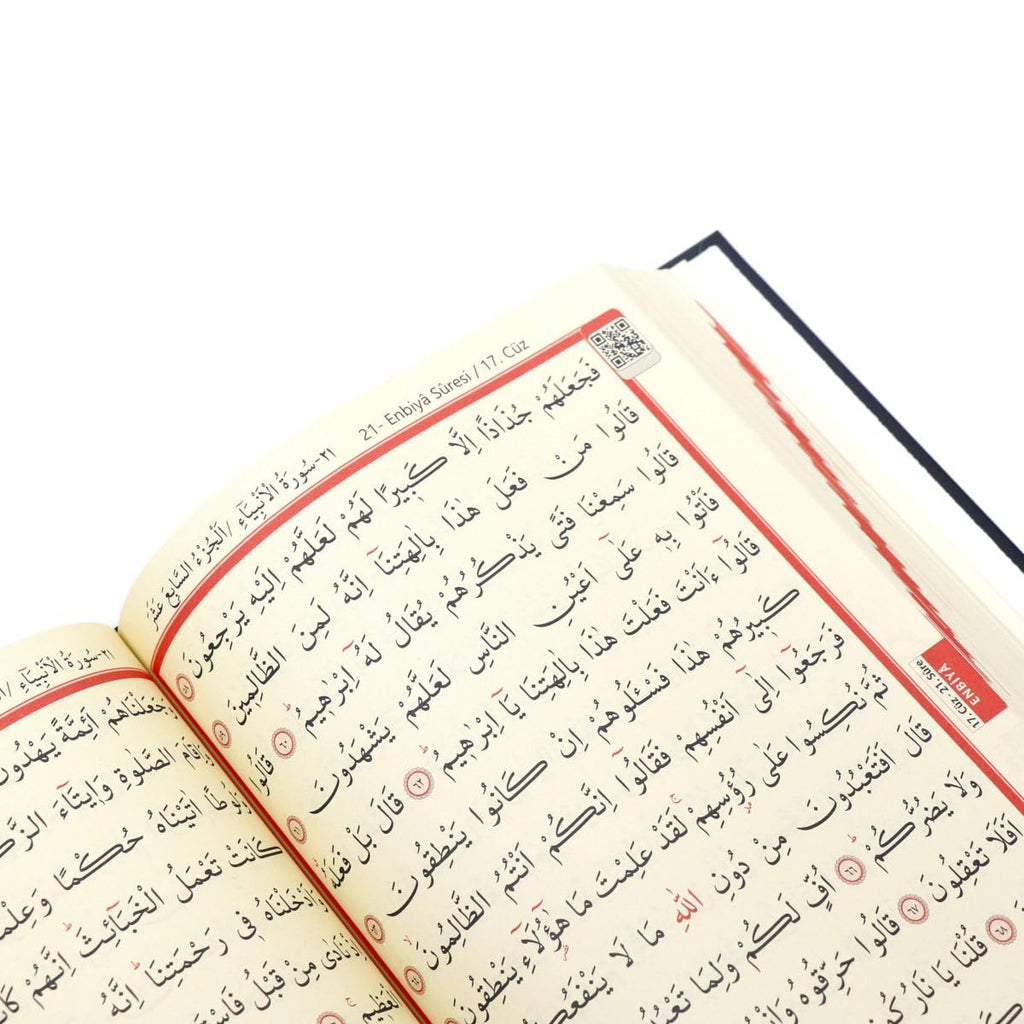 ٢١-سُورَةُ الْاَنْبِيَٓاءِ /اَلْجُزْءُ السَّابِعَ عَشَرَ 21- Enbiyâ Sûresi / 17. Cüz
فَجَعَلَهُمْ جُذَاذًا اِلَّا كَب۪يرًا لَهُمْ لَعَلَّهُمْ اِلَيْهِ يَرْجِعُونَ ٥٨
قَالُوا مَنْ فَعَلَ هٰذَا بِاٰلِهَتِنَٓا اِنَّهُ لَمِنَ الظَّالِم۪ينَ ٥٩
قَالُوا سَمِعْنَا فَتًى يَذْكُرُهُمْ يُقَالُ لَهُٓ اِبْرٰه۪يمُ ٦٠ قَالُوا
فَأْتُوا بِه۪ عَلٰٓى اَعْيُنِ النَّاسِ لَعَلَّهُمْ يَشْهَدُونَ ٦١
قَالُٓوا ءَاَنْتَ فَعَلْتَ هٰذَا بِاٰلِهَتِنَا يَٓا اِبْرٰه۪يمُ ٦٢ قَالَ بَلْ فَعَلَهُ
كَب۪يرُهُمْ هٰذَا فَسْـَٔلُوهُمْ اِنْ كَانُوا يَنْطِقُونَ ٦٣
فَرَجَعُٓوا اِلٰٓى اَنْفُسِهِمْ فَقَالُٓوا اِنَّكُمْ اَنْتُمُ الظَّالِمُونَ ٦٤
ثُمَّ نُكِسُوا عَلٰى رُؤُ۫سِهِمْ لَقَدْ عَلِمْتَ مَا هٰٓؤُ۬لَٓاءِ يَنْطِقُونَ
قَالَ اَفَتَعْبُدُونَ مِنْ دُونِ اللّٰهِ مَا لَا يَنْفَعُكُمْ
وَلَا يَضُرُّكُمْ ٦٦ اُفٍّ لَكُمْ وَلِمَا تَعْبُدُونَ
اَفَلَا تَعْقِلُونَ ٦٧ قَالُوا حَرِّقُوهُ
٦٨ قُلْنَا يَا نَارُ
17. Cüz - 21. Sûre
ENBİYÂ
٢١-سُورَةُ الْاَنْبِيَٓاءِ
وَجَعَلْنَاهُمْ اَئِمَّةً يَهْدُونَ
وَاِقَامَ الصَّلٰوةِ وَا۪يتَٓاءَ
وَلُوطًا اٰتَيْنَاهُ حُكْمًا وَعِلْمًا
كَانَتْ تَعْمَلُ الْخَبَٓائِثَ اِنَّهُمْ
وَاَدْخَلْنَاهُ ف۪ي رَحْمَتِنَا اِنَّهُ
اِذْ نَادٰى مِنْ قَبْلُ
الْعَظ۪يمِ